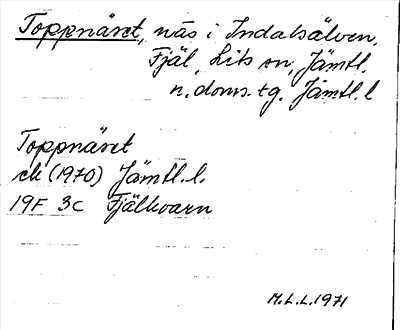 Toppnäset, näs i Indalsälven,
Fjäl, Lits sn, Jämtl.
n. doms. tg. Jämtl. l
Toppnäset
ek (1970) Jämtl. l.
19F 3c Fjälkvarn
M.L.L. 1971